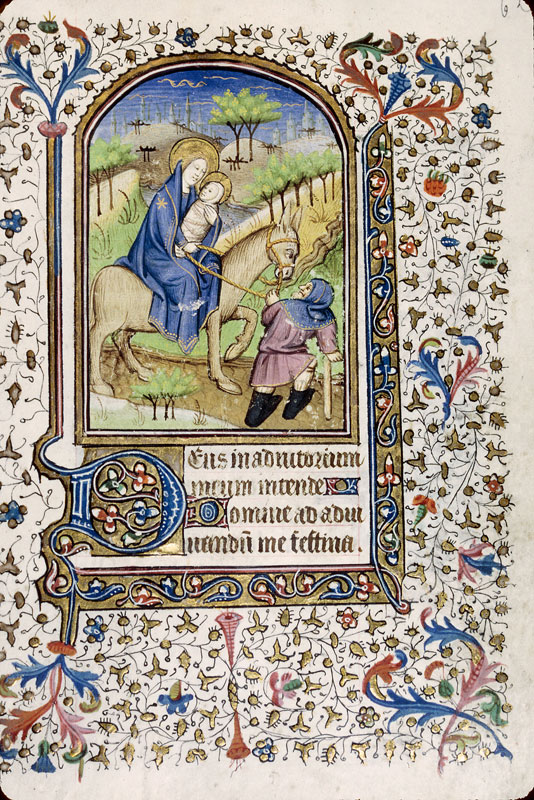 6
Deus in adiutorium
meum intende
Domine ad adiu
uandū me festina.